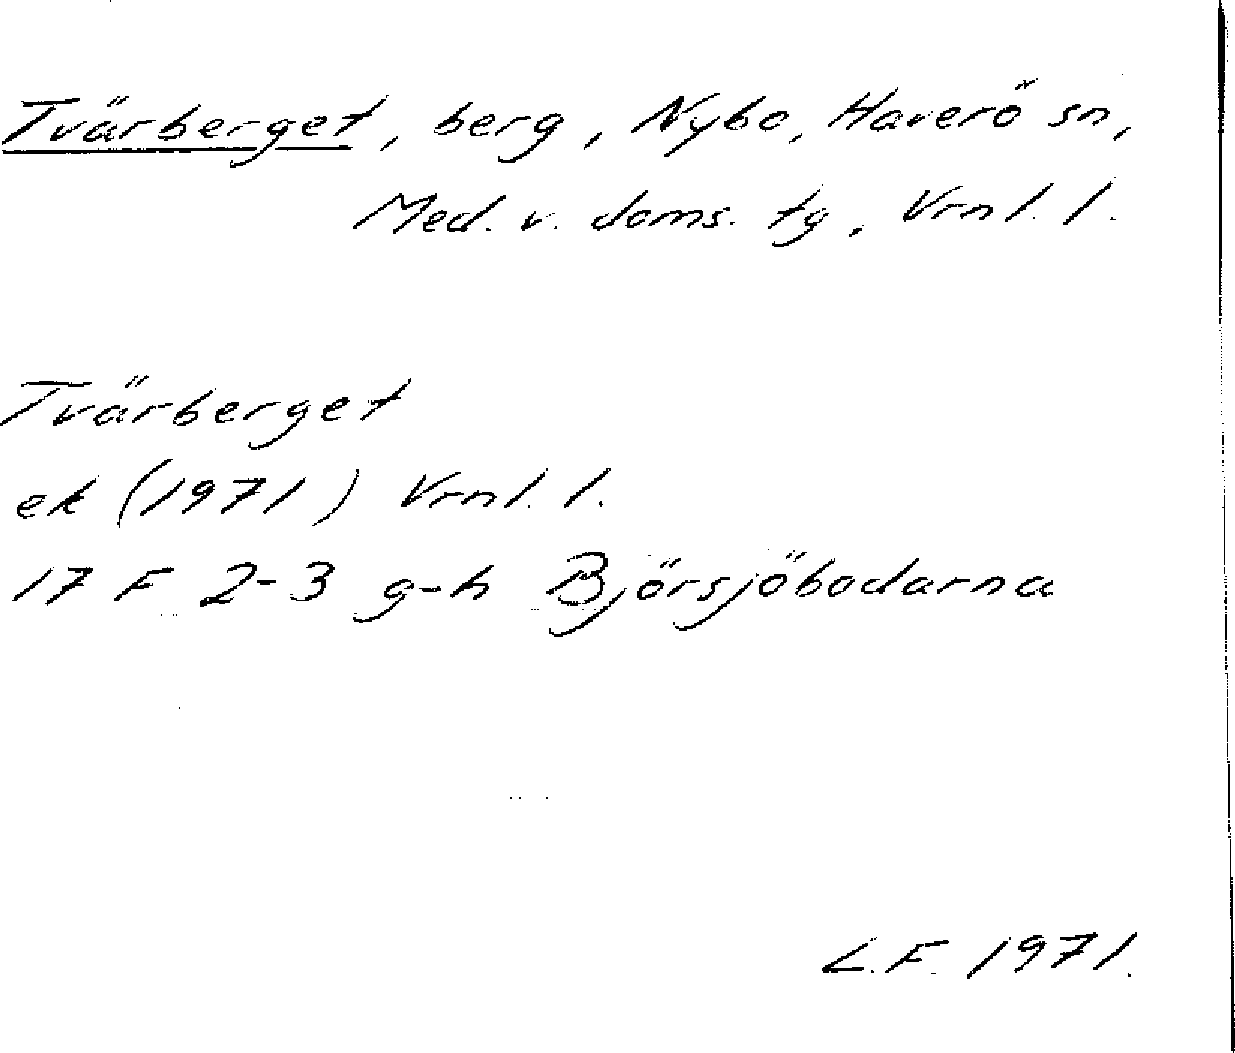 Tvärberget, berg, Nybo, Haverö sn,
Med. v. doms. tg, Vrnl. l.
Tvärberget
ek (1971) Vrnl. l.
17 F 2-3 g-h Björsjöbodarna
L.F. 1971.